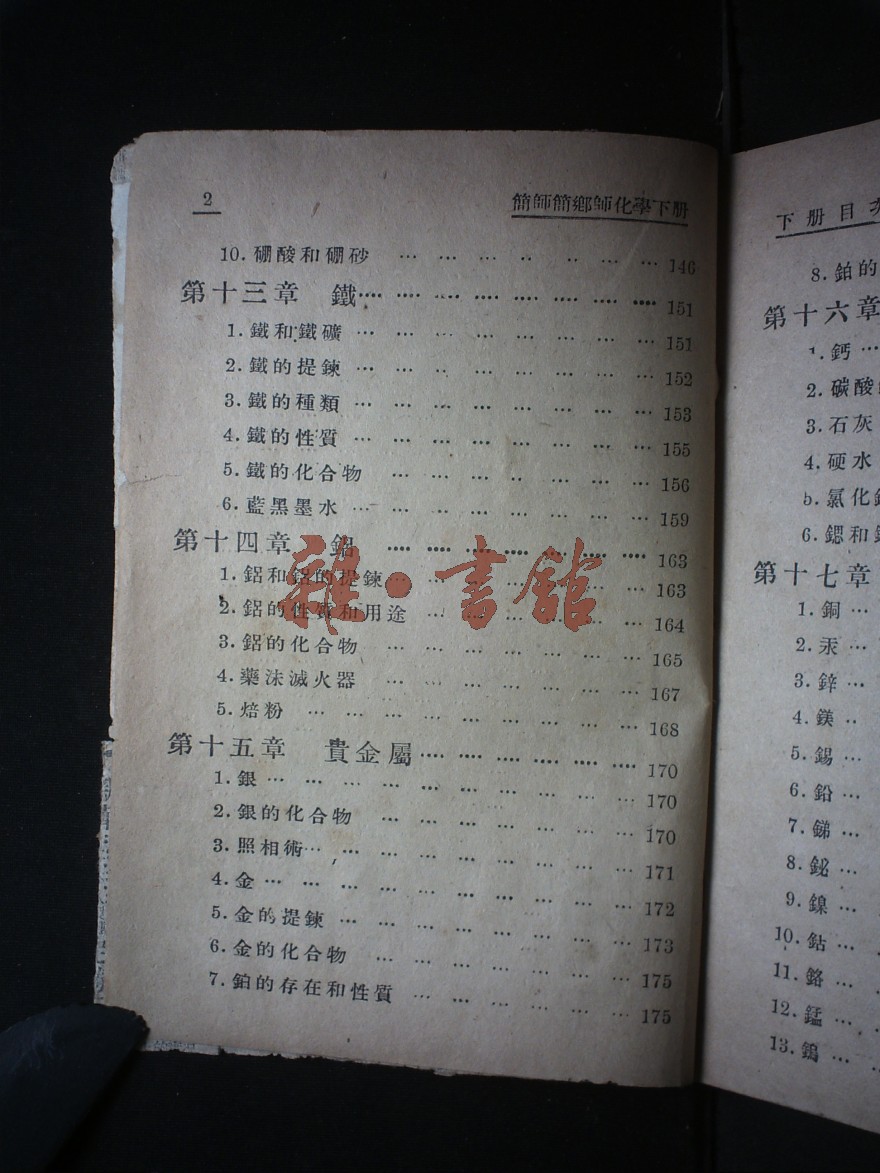 2
簡師簡鄉師化學下册
10. 硼酸和硼砂 … … … … … … … 146
第十三章 鐵 … … … … … … … … 151
1. 鐵和鐵礦 … … … … … … … … 151
2. 鐵的提鍊 … … … … … … … … 152
3. 鐵的種類 … … … … … … … … 153
4. 鐵的性質 … … … … … … … … 155
5. 鐵的化合物 … … … … … … … 156
6. 藍黑墨水 … … … … … … … … 159
第十四章 鋁 … … … … … … … 163
1. 鋁和鋁的提鍊 … … … … … … … 163
2. 鋁的性質和用途 … … … … … … 164
3. 鋁的化合物 … … … … … … … 165
4. 藥沫滅火器 … … … … … … … 167
5. 焙粉 … … … … … … … … … 168
第十五章 貴金屬 … … … … … … 170
1. 銀 … … … … … … … … … … 170
2. 銀的化合物 … … … … … … … 170
3. 照相術 … … … … … … … … … 171
4. 金 … … … … … … … … … … 172
5. 金的提鍊 … … … … … … … … 173
6. 金的化合物 … … … … … … … 175
7. 鉑的存在和性質 … … … … … … 175
雜·書館
下册目
8. 鉑的
第十六章
1. 鈣 …
2. 碳酸
3. 石灰
4. 硬水
5. 氯化
6. 鍶和
第十七章
1. 銅 …
2. 汞 …
3. 鋅 …
4. 鎂 …
5. 錫 …
6. 鉛 …
7. 銻 …
8. 鉍 …
9. 鎳 …
10. 鈷 …
11. 鉻 …
12. 錳 …
13. 鎢 …